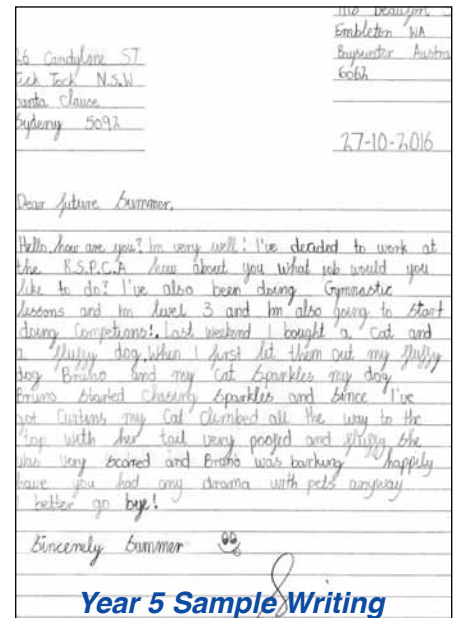 Embleton WA
26 Candylane ST
Bayswater Austra
Tick Tock N.S.W
6062
Santa Clause
Sydeny 5092
27-10-2016
Dear future Summer,
Hello, how are you? Im very well! I've decided to work at
the R.S.P.C.A how about you what job would you
like to do? I've also been doing Gymnastic
lessons and Im level 3 and Im also going to start
doing Competions!. Last weekend I bought a Cat and
a fluffy dog. When I first let them out my fluffy
dog Bruno and my Cat Sparkles my dog
Bruno started chasing Sparkles and since I've
got Curtins my Cat climbed all the way to the
top with her tail very poofed and fluffy she
was very scared and Bruno was barking happily
have you had any drama with pets anyway
I better go bye!
Sincenely Summer
Year 5 Sample Writing